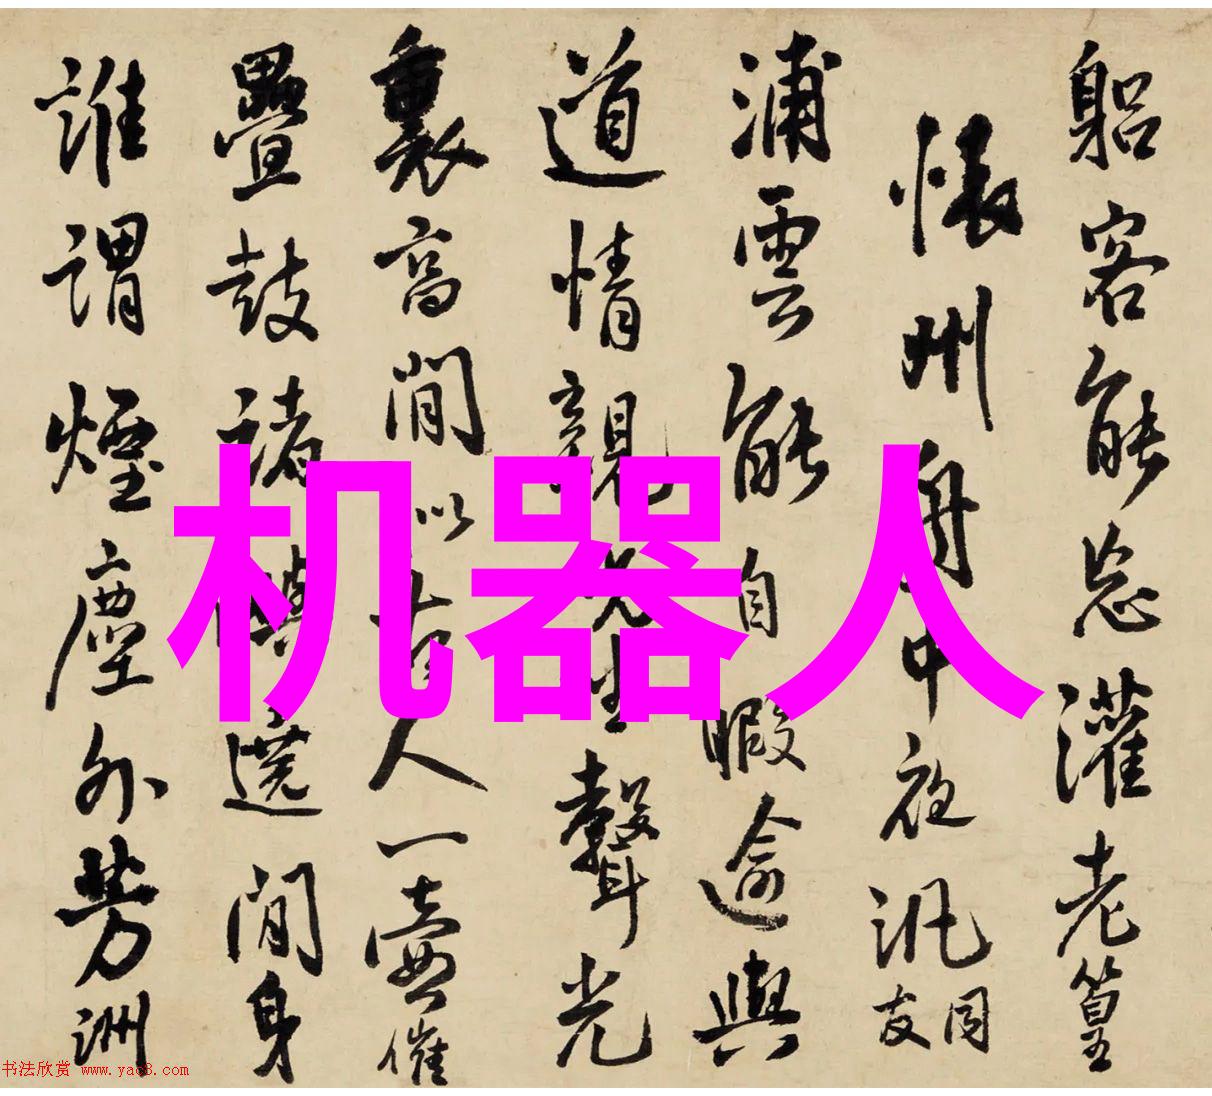 躳客能忘灌老篁
懷州舟中夜汎同友
浦雲能自暇逾與
道情親先生聲光
裏高閒以古人一壺催
疊鼓諸遶閒身
誰謂煙塵外芳洲
机器人
书法欣赏 www.yac8.com